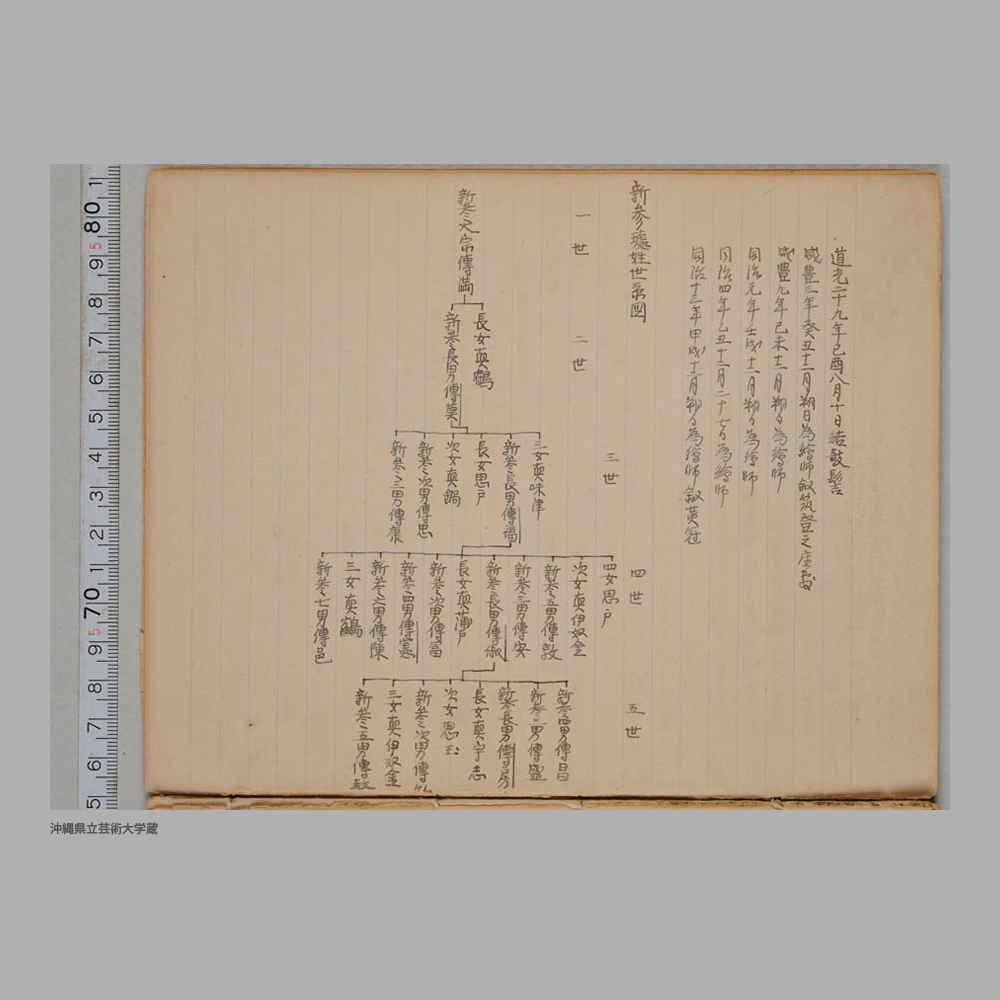 道光二十九年己酉八月十日結欹髻
咸豊三年癸丑十二月朔日為絵師叙筑登之座敷
咸豊九年己未十二月朔日為絵師
同治元年壬戌十二月朔日為絵師
同治四年乙丑十二月二十七日為絵師
同治十三年甲戌十二月朔日為絵師叙黄冠
新參姓世系図
一世
二世
三世
四世
五世
新參大宗傳満
長女真鶴
新參長男傳莫
三女真味津
新參長男傳福
長女思戸
次女真鍋
新參次男傳忠
新參三男傳康
四女思戸
次女真伊奴金
新參五男傳敦
新參三男傳安
新參長男傳俶
長女真蒲戸
新參次男傳富
新參四男傳憲
新參六男傳陳
三女真鶴
新參七男傳邑
新參四男傳昌
新參三男傳盛
新參長男傳房
長女真宇志
次女思玉
新參次男傳
三女真伊奴金
新參五男傳
沖縄県立芸術大学蔵